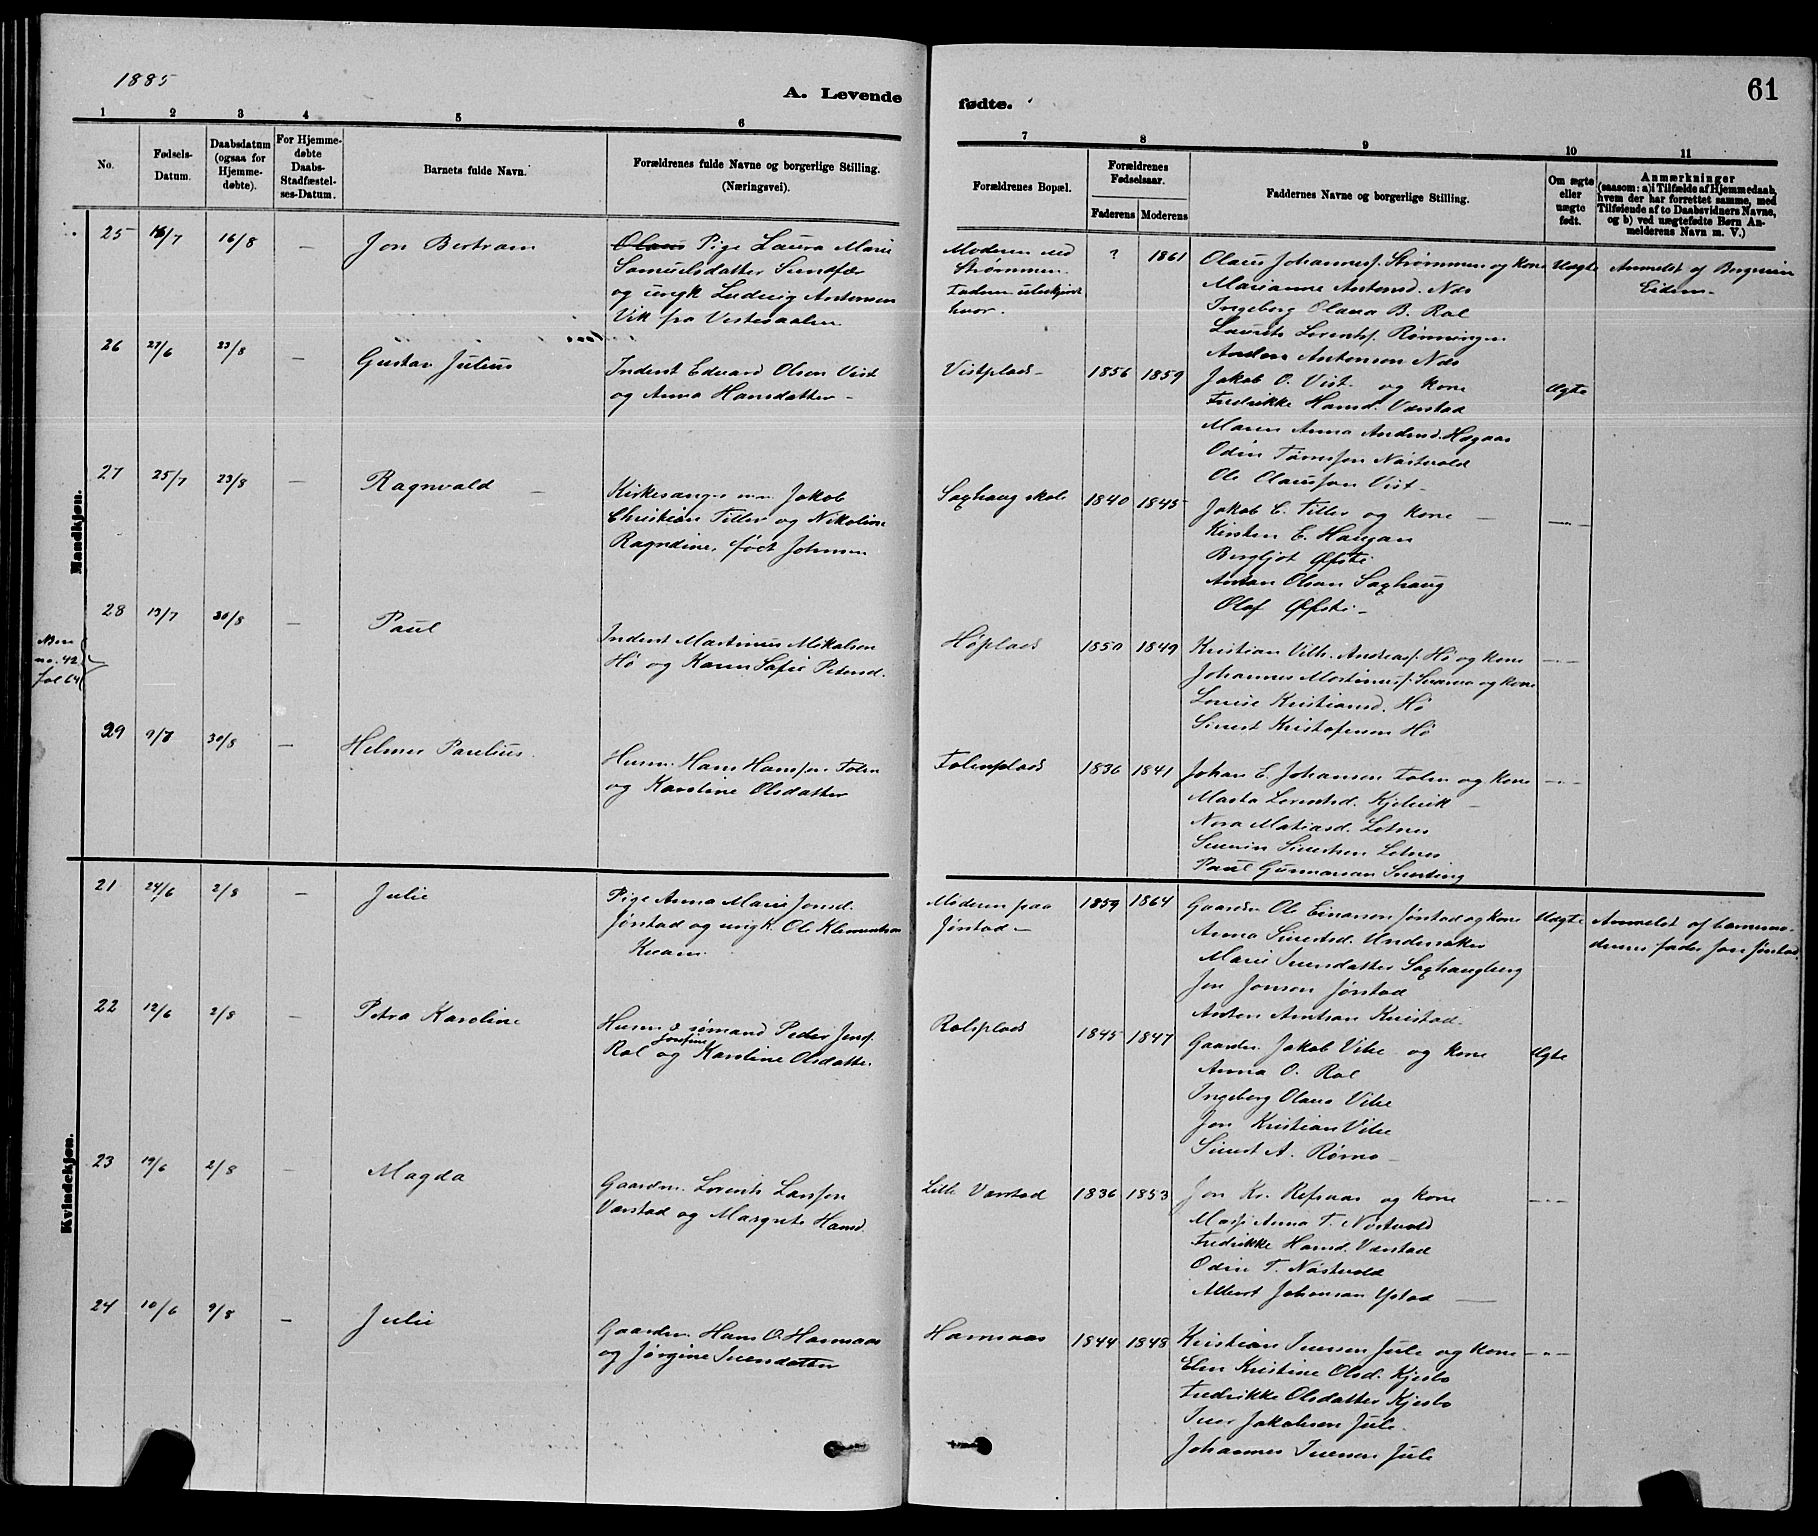 1885
A. Levende
fødte.
61
1 2 3 4 5 6 7 8 9 10 11
No.
Fødsels-
Datum.
Daabsdatum
(ogsaa for
Hjemme-
døbte).
For Hjemme-
døbte
Daabs-
Stadfæstel-
ses-Datum.
Barnets fulde Navn.
Forældrenes fulde Navne og borgerlige Stilling.
(Næringsvei).
Forældrenes Bopæl.
Forældrenes
Fødselsaar.
Faderens Moderens
Faddernes Navne og borgerlige Stilling.
Om ægte
eller
uægte
født.
Anmærkninger
(saasom: a) i Tilfælde af Hjemmedaab,
hvem der har forrettet samme, med
Tilføiende af to Daabsvidners Navne,
og b) ved uægtefødte Børn An-
melderens Navn m. V.)
Mandkjøn.
25 16/7 16/8 — Jon Bertram
Olaus Pige Laura Marie
Samuelsdatter Sundfær
og ungk Ludvig Antonsen
Vik fra Vesteraalen
Moderen ved
Strømmen.
Faderen ubekjendt
hvor.
? 1861
Olaus Johannesf. Strømmen og kone
Marianne Antonsd. Næs
Ingeborg Olava B. Rol
Laurits Lorentsf. Rønningen
Anders Antonsen Næs
Uægte
Anmeldt af Bergsvein
Eidem
26 27/6 23/8 — Gustav Julius
Inderst Edvard Olsen Vist
og Anna Hansdatter —
Vistplads — 1856 1859
Jakob O. Vist og kone
Fredrikke Hansd. Værstad
Maren Anna Andersd. Hegaas
Odin Tønnesen Nøstvold
Ole Olaussen Vist —
Ægte
27 25/7 23/8 — Ragnvald —
Kirkesanger m.m. Jakob
Christian Tiller og Nikoline
Ragndine, født Johnsen
Saxhaug skole 1840 1845
Jakob C. Tiller og kone —
Kirsten E. Haugan
Bergljot Øfsti
Anton Olsen Saxhaug
Olaf Øfsti —
—"—
28 19/7 30/8 — Paul
no. 42
fol 64
Inderst Martinus Mikalsen
Hø og Karen Safie Petersd.
Høplads 1850 1849
Kristian Vilh. Andreasf. Hø og kone
Johannes Mortinusf. og kone
Lovise Kristiansd. Hø
Sivert Kristofersen Hø
—"—
29 9/7 30/8 — Helmer Paulius.
Husm. Hans Hansen Folen
og Karoline Olsdatter
Folenplads 1836 1841
Johan E. Johansen Folen og kone
Marta Lorentsd. Kjelvik —
Nora Matiasd. Letnes
Severin Sivertsen Letnes
Paul Gunnarsen Sverting
—"—
Kvindekjøn.
21 24/6 2/8 — Julie
Pige Anna Marie Jonsd.
Jørstad og ungk. Ole Klementsen
Kvam.
Moderen paa
Jørstad —
1859 1864
Gaardbr Ole Einarsen Jørstad og kone
Anna Sivertsd. Undersaker
Marie Iversdatter Saxhaugberg
Jon Jonsen Jørstad
Anton Arntsen Kvistad.
Uægte
Anmeldt af barnemo-
derens fader Jon Jørstad.
22 12/6 2/8 — Petra Karoline
Husm & sømand Peder Jensf.
Rol og Josefine Karoline Olsdatter.
Rolsplads 1845 1847
Gaardbr Jakob Vibe og kone
Anna O. Rol
Ingeborg Olava Vibe
Jon Kristian Vibe
Sivert A. Rømo —
Ægte
23 19/6 2/8 — Magda
Gaardm. Lorents Larssen
Værstad og Margrete Hansd.
Lille Værstad 1836 1853
Jon Kr. Refsaas og kone
Marji Anna T. Nøstvold
Fredrikke Hansd. Værstad
Odin T. Nøstvold
Albert Johansen Ystad —
—"—
24 10/6 9/8 — Julie
Gaardm. Hans O. Hamnaas
og Jørgine Iversdatter
Hamnaas 1844 1848
Kristian Iversen Jule og kone
Elen Kristine Olsd. Kjesbo
Fredrikke Olsdatter Kjesbo
Iver Jakobsen Jule.
Johannes Iversen Jule
—"—